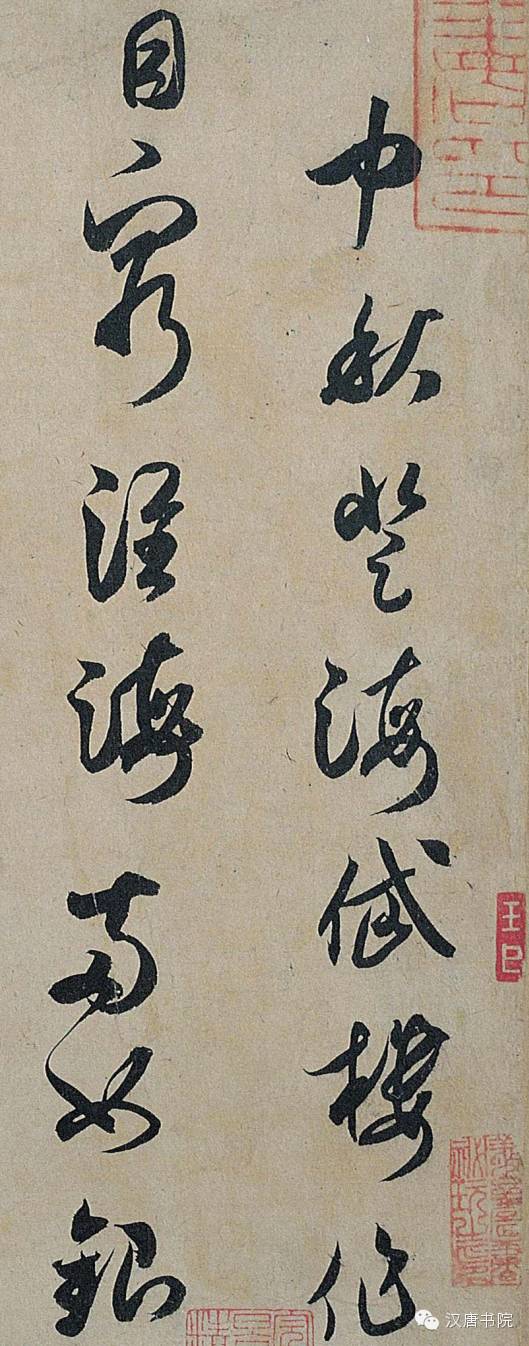 中秋登海岱樓作
目窮淮海兩如銀
王巳
汉唐书院